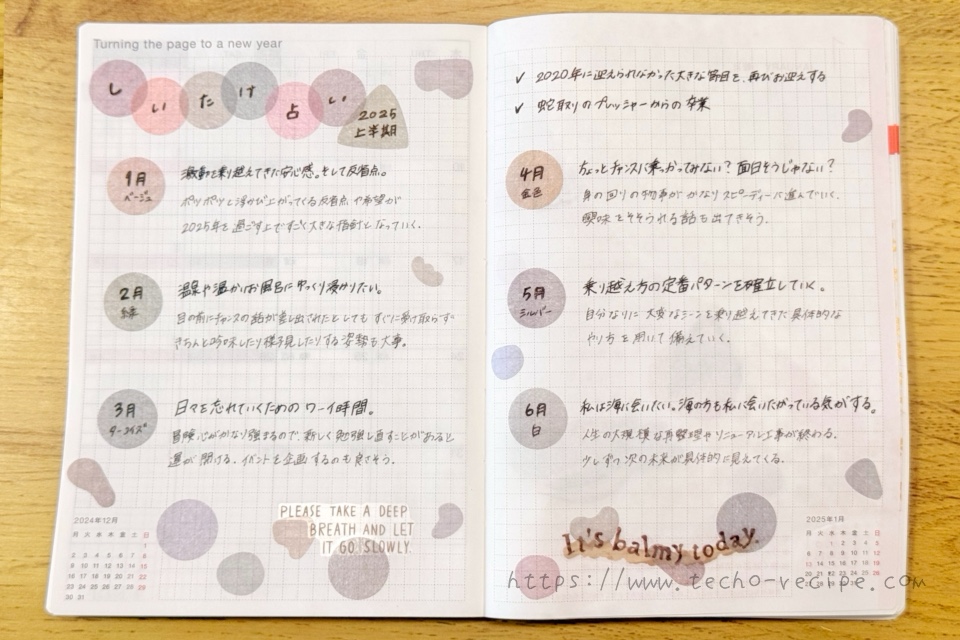 Turning the page to a new year
しいたけ占い
2025
上半期
1月
ベージュ
激動を乗り越えてきた安心感。そして反省点。
ポツポツと浮かび上がってくる反省点や希望が
2025年を過ごす上ですごく大きな指針となっていく。
2月
緑
温泉や温かいお風呂にゆっくり浸かりたい。
目の前にチャンスの話が差し出されたとしてもすぐに受け取らずに
きちんと吟味したり様子見したりする姿勢も大事。
3月
ターコイズ
日々を忘れていくためのワーイ時間。
冒険心がかなり強まるので、新しく勉強し直すことがあると
運が開ける。イベントを企画するのも良さそう。
PLEASE TAKE A DEEP
BREATH AND LET
IT GO SLOWLY.
2024年12月
月 火 水 木 金 土 日
1
2 3 4 5 6 7 8
9 10 11 12 13 14 15
16 17 18 19 20 21 22
23 24 25 26 27 28 29
30 31
✓ 2020年に迎えられなかった大きな節目を、再びお迎えする
✓ 蛇取りのプレッシャーからの卒業
4月
金色
ちょっとチャンスに乗っかってみない?面白そうじゃない?
身の回りの物事がかなりスピーディーに進んでいく。
興味をそそられる話も出てきそう。
5月
シルバー
乗り越え方の定番パターンを確立していく。
自分なりに大変なシーンを乗り越えてきた具体的な
やり方を用いて備えていく。
6月
白
私は海に会いたい。海の方も私に会いたがっている気がする。
人生の大規模な再整理やリニューアル工事が終わる。
少しずつ次の未来が具体的に見えてくる。
It's balmy today.
2025年1月
月 火 水 木 金 土 日
1 2 3 4 5
6 7 8 9 10 11 12
13 14 15 16 17 18 19
20 21 22 23 24 25 26
27 28 29 30 31
https://www.techo-recipe.com